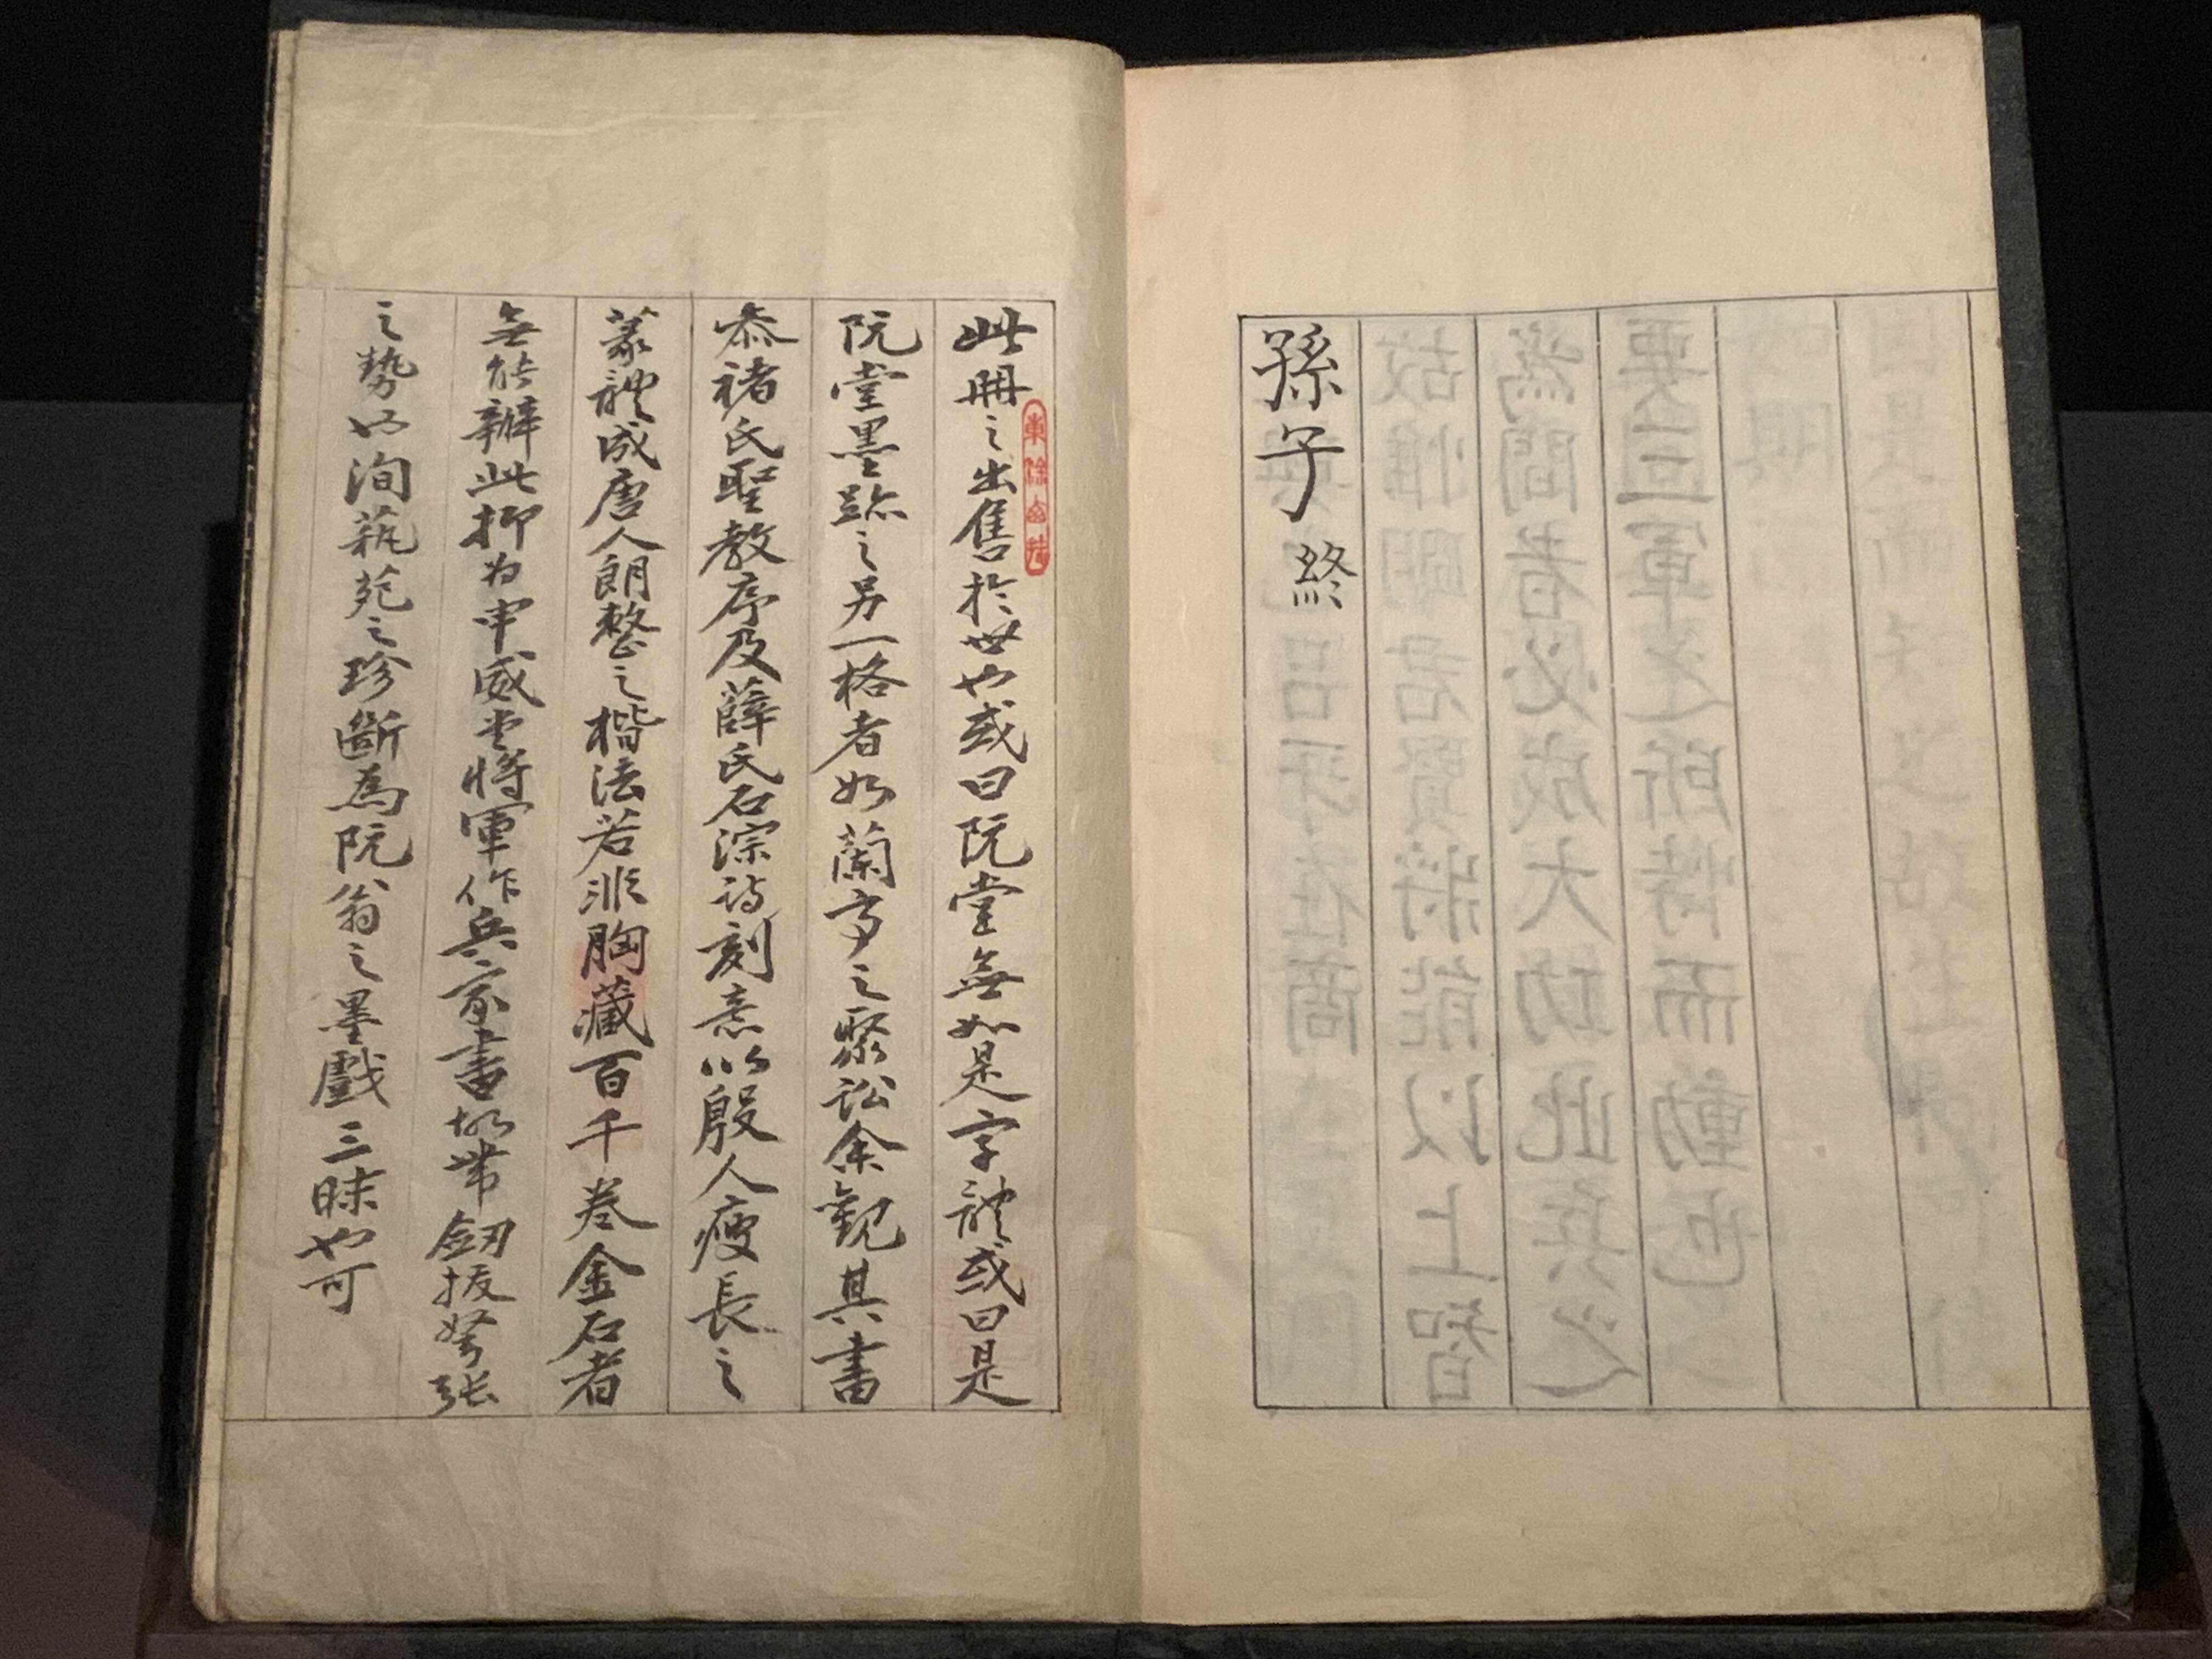 孫子 終
此冊之出售於世也或曰阮堂無如是字體或曰是
阮堂墨跡之另一格者如蘭亭之聚訟余觀其書
參褚氏聖教序及薛氏石淙詩刻意以殷人瘦長之
篆體成唐人朗整之楷法若非胸藏百千卷金石者
無能辦此抑为申威堂將軍作兵家書故帶劒拔弩張
之勢以洵蓺苑之珍斷為阮翁之墨戲三昧也可